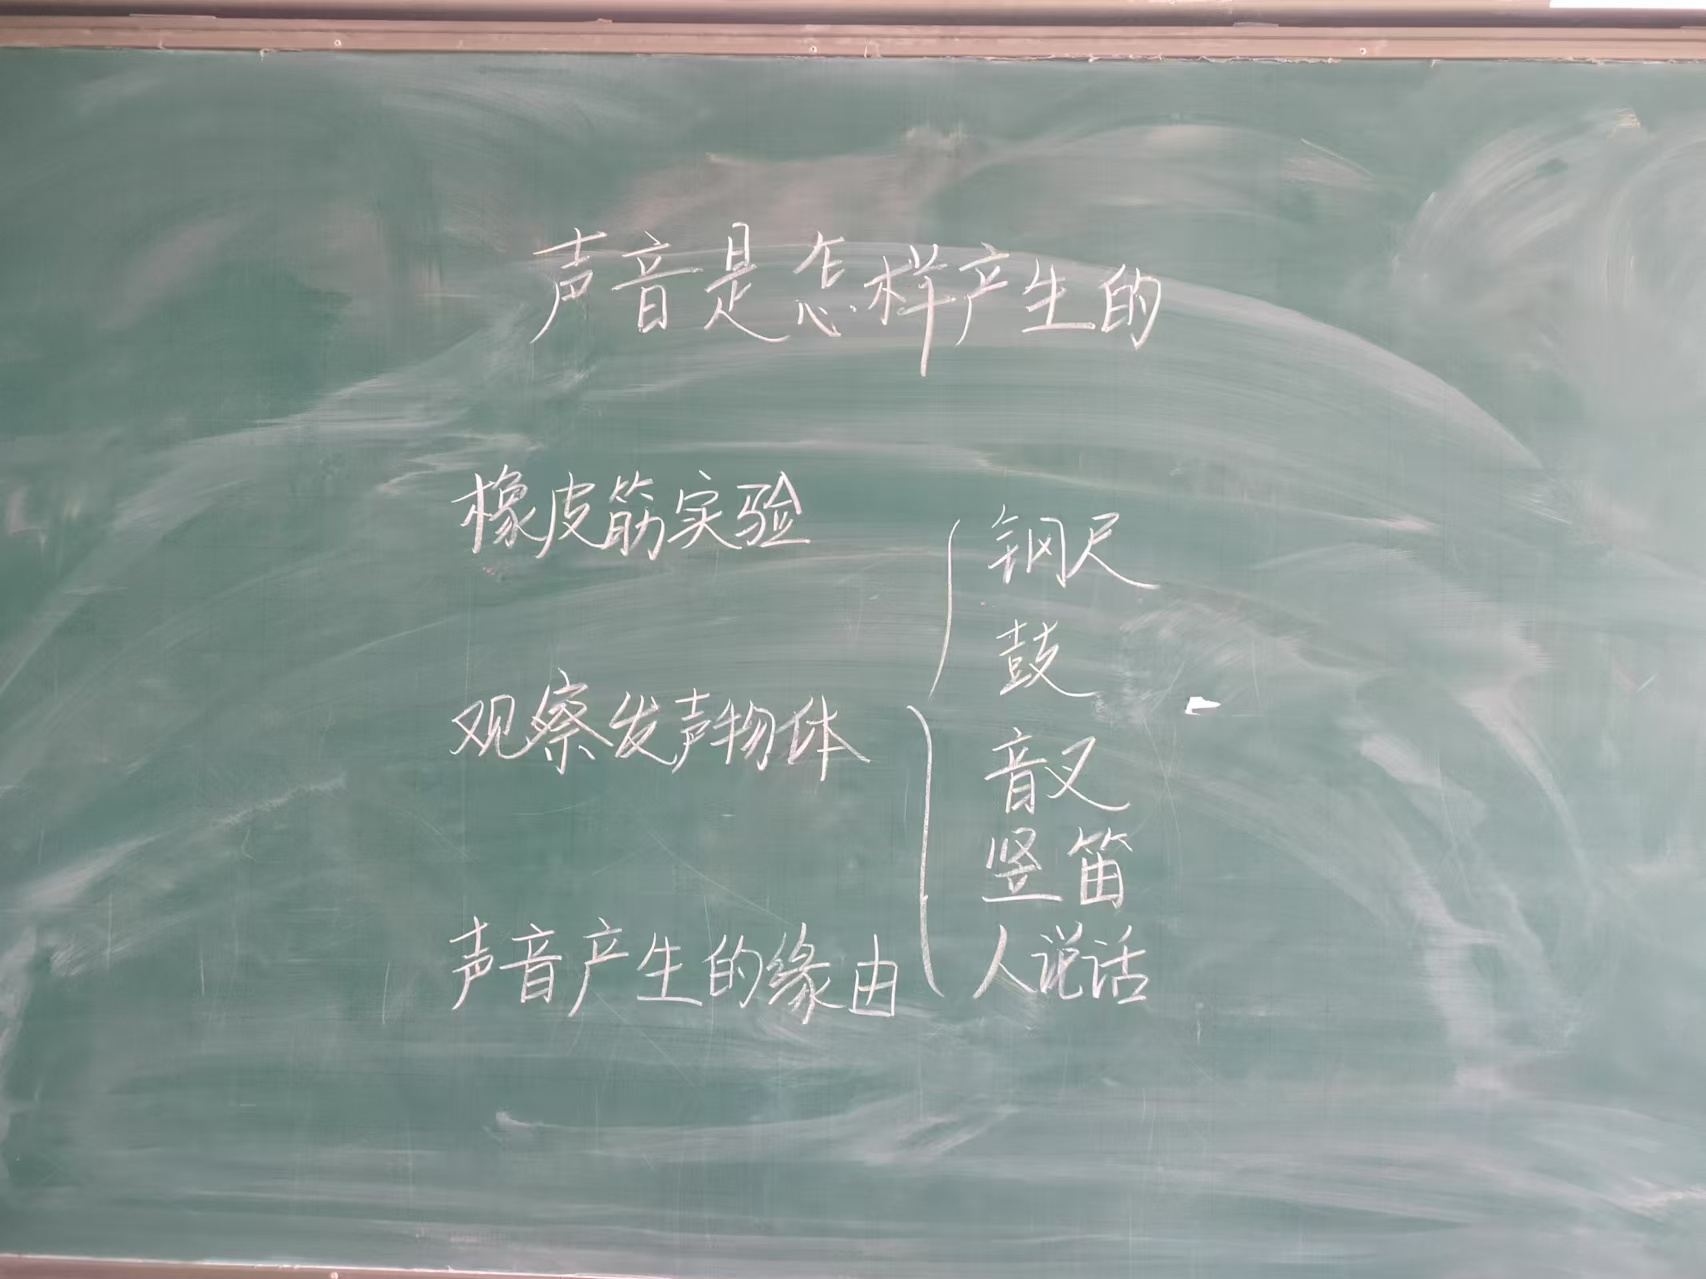 声音是怎样产生的
橡皮筋实验
观察发声物体
钢尺
鼓
音叉
竖笛
人说话
声音产生的缘由